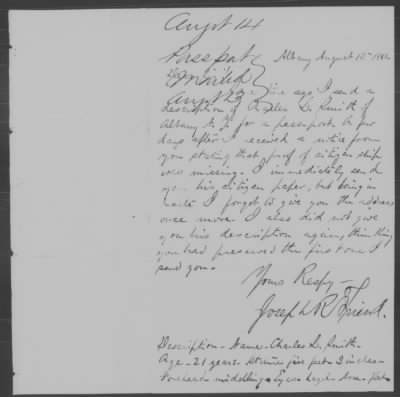 Augst 14
Passport
Albany August 12th 1862
Augst 13
time ago I send a
description of Charles D. Smith of
Albany N.Y. for a passport. A few
days after I received a notice from
you stating that proof of citizen ship
was missing. I immediately send
you his citizen paper, but being in
haste I forgot to give you the address
once more. I also did not give
you his description again, thinking
you had preserved the first one I
send you.
Yours Respy
Joseph R
Description - Name - Charles D. Smith -
Age - 21 years - Stature five feet - 2 inches -
Forehead - middling - Eyes -